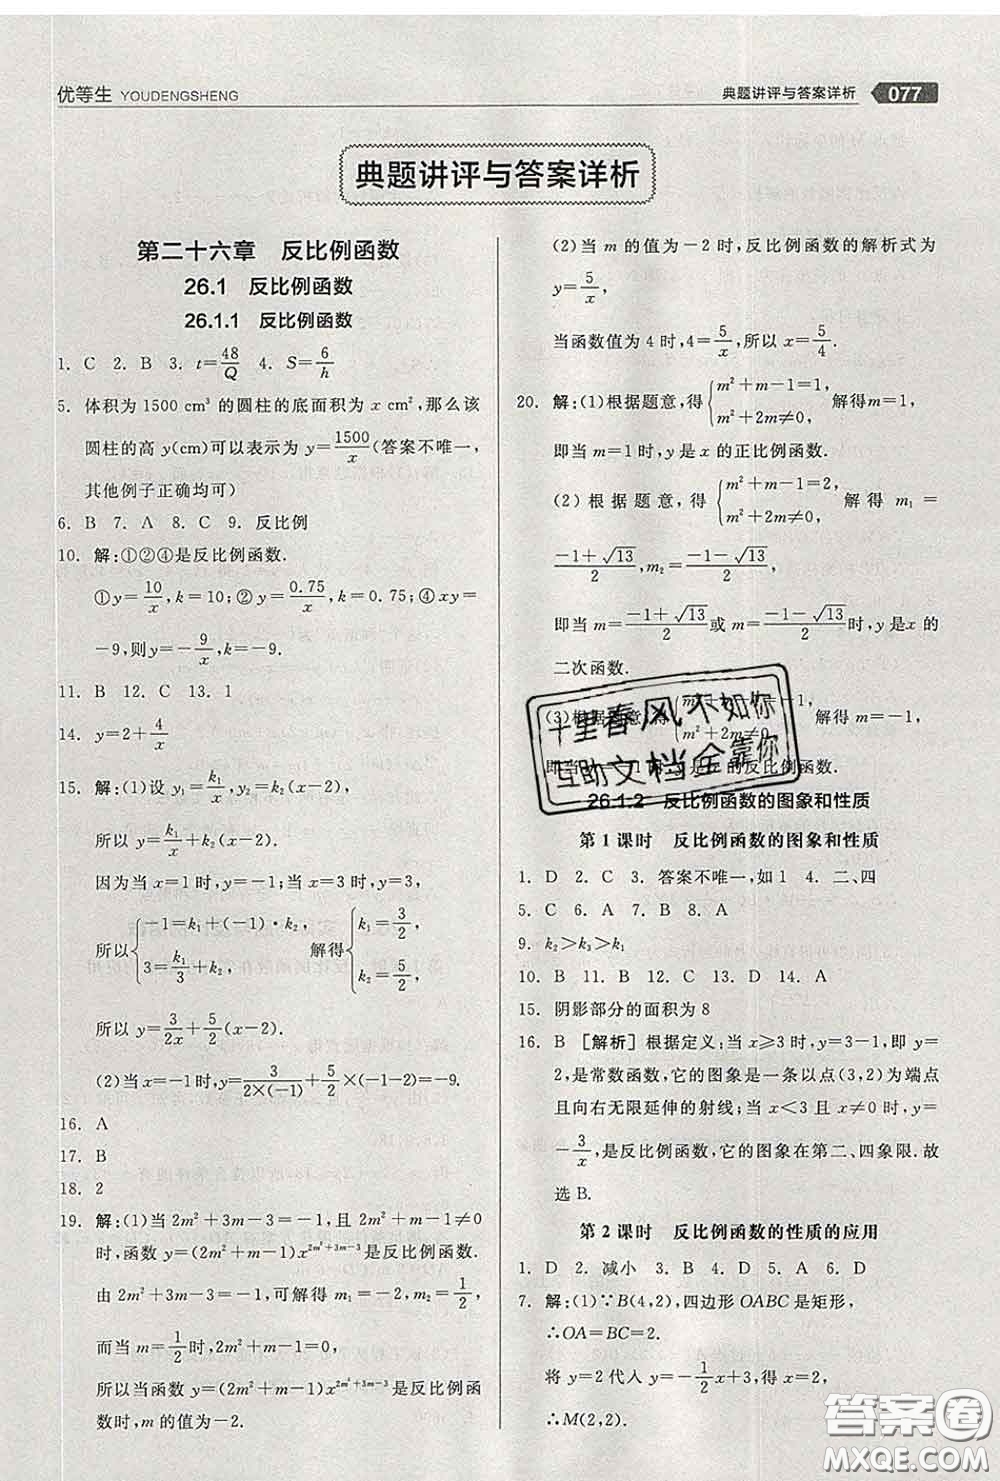 优等生 YOUDENGSHENG
典题讲评与答案详析 077
典题讲评与答案详析
第二十六章 反比例函数
26.1 反比例函数
26.1.1 反比例函数
1. C 2. B 3. t=48/Q 4. S=6/h
5. 体积为 1500 cm³ 的圆柱的底面积为 x cm²,那么该
圆柱的高 y(cm)可以表示为 y=1500/x(答案不唯一,
其他例子正确均可)
6. B 7. A 8. C 9. 反比例
10. 解:①②④是反比例函数.
①y=10/x,k=10;②y=0.75/x,k=0.75;④xy=
-9,则y=-9/x,k=-9.
11. B 12. C 13. 1
14. y=2+4/x
15. 解:(1)设 y₁=k₁/x,y₂=k₂(x-2),
所以 y=k₁/x+k₂(x-2).
因为当 x=1 时,y=-1;当 x=3 时,y=3,
所以{-1=k₁+(-1)·k₂, 3=k₁/3+k₂, 解得{k₁=3/2, k₂=5/2.
所以 y=3/2x+5/2(x-2).
(2)当 x=-1 时,y=3/2×(-1)+5/2×(-1-2)=-9.
16. A
17. B
18. 2
19. 解:(1)当 2m²+3m-3=-1,且 2m²+m-1≠0
时,函数 y=(2m²+m-1)x^(2m²+3m-3)是反比例函数.
由 2m²+3m-3=-1,可解得 m₁=-2,m₂=1/2,
而当 m=1/2时,2m²+m-1=0,
所以当函数 y=(2m²+m-1)x^(2m²+3m-3)是反比例函
数时,m 的值为-2.
(2)当 m 的值为-2时,反比例函数的解析式为
y=5/x,
当函数值为 4 时,4=5/x,所以 x=5/4.
20. 解:(1)根据题意,得{m²+m-1=1, m²+2m≠0, 解得m=1,
即当 m=1 时,y 是 x 的正比例函数.
(2)根据题意,得{m²+m-1=2, m²+2m≠0, 解得 m₁=
-1+√13/2,m₂=-1-√13/2,
即当 m=-1+√13/2或 m=-1-√13/2时,y是 x 的
二次函数.
(3)根据题意,得 解得 m=-1,
即当 时 的反比例函数.
十里春风不如你
互助文档全靠你
26.1.2 反比例函数的图象和性质
第 1 课时 反比例函数的图象和性质
1. D 2. C 3. 答案不唯一,如 1 4. 二、四
5. C 6. A 7. B 8. A
9. k₂>k₃>k₁
10. B 11. B 12. C 13. D 14. A
15. 阴影部分的面积为 8
16. B [解析] 根据定义:当 x≥3 时,y=3-1,即 y=
2,是常数函数,它的图象是一条以点(3,2)为端点
且向右无限延伸的射线;当 x<3 且 x≠0 时,y=
-3/x,是反比例函数,它的图象在第二、四象限.故
选 B.
第 2 课时 反比例函数的性质的应用
1. D 2. 减小 3. B 4. D 5. A 6. D
7. 解:(1)∵B(4,2),四边形 OABC 是矩形,
∴OA=BC=2.
将 y=2 代入 y=-1/2x+3,得 x=2,
∴M(2,2).
答案圈
MXQE.COM